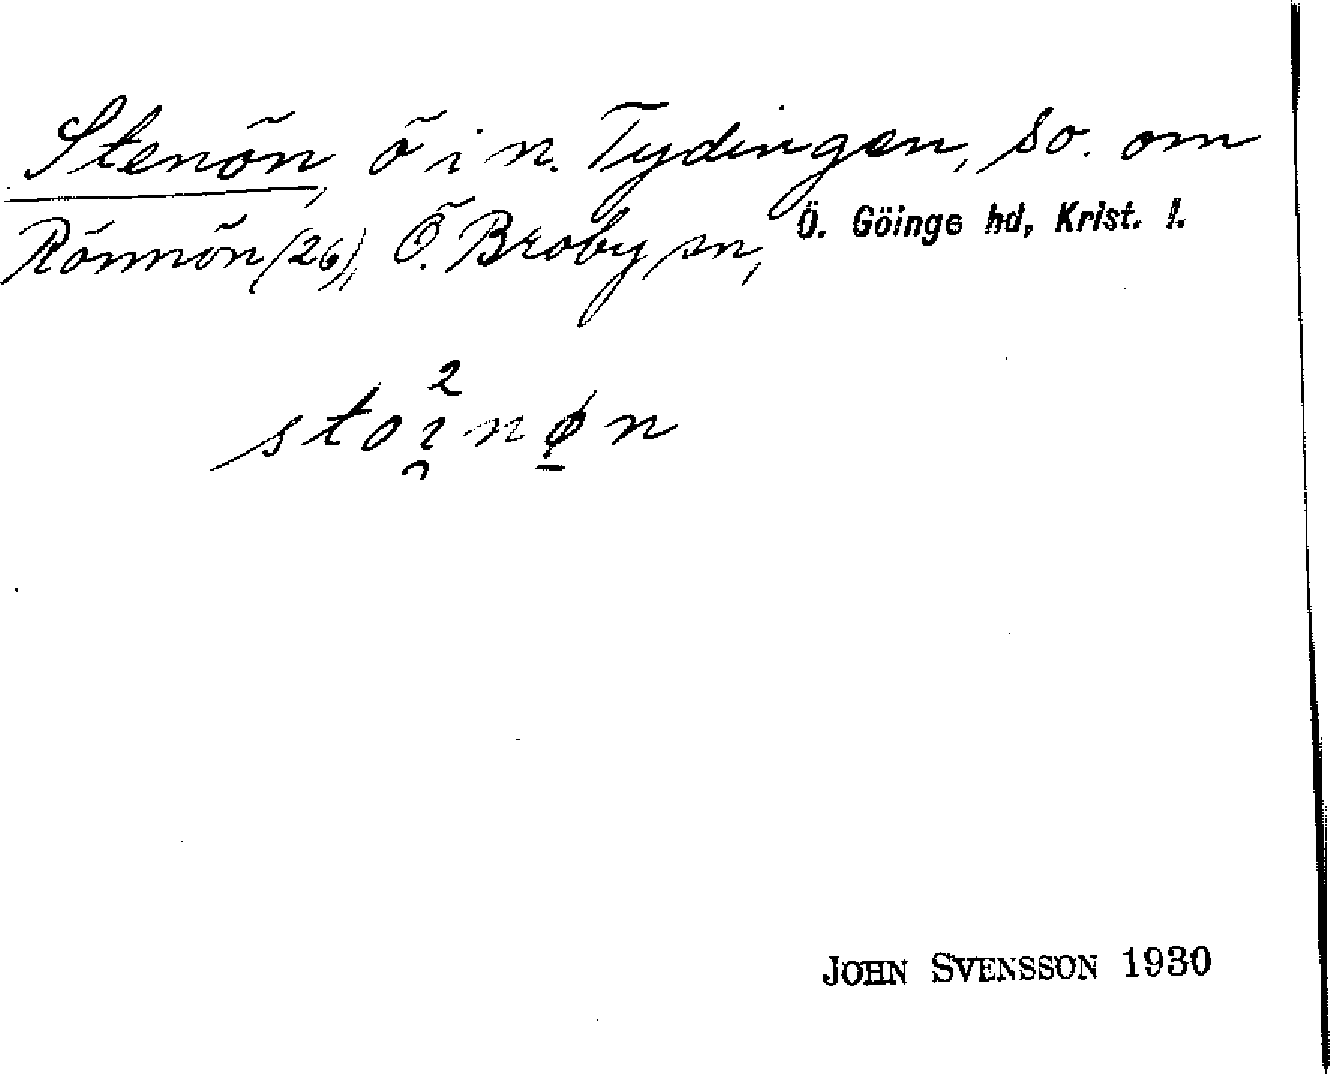 Stenön, ö i n. Tydingen, so. om
Rönnön (26), Ö. Broby sn, Ö. Göinge hd, Krist. l.
stoi̯²nø̲n
JOHN SVENSSON 1930